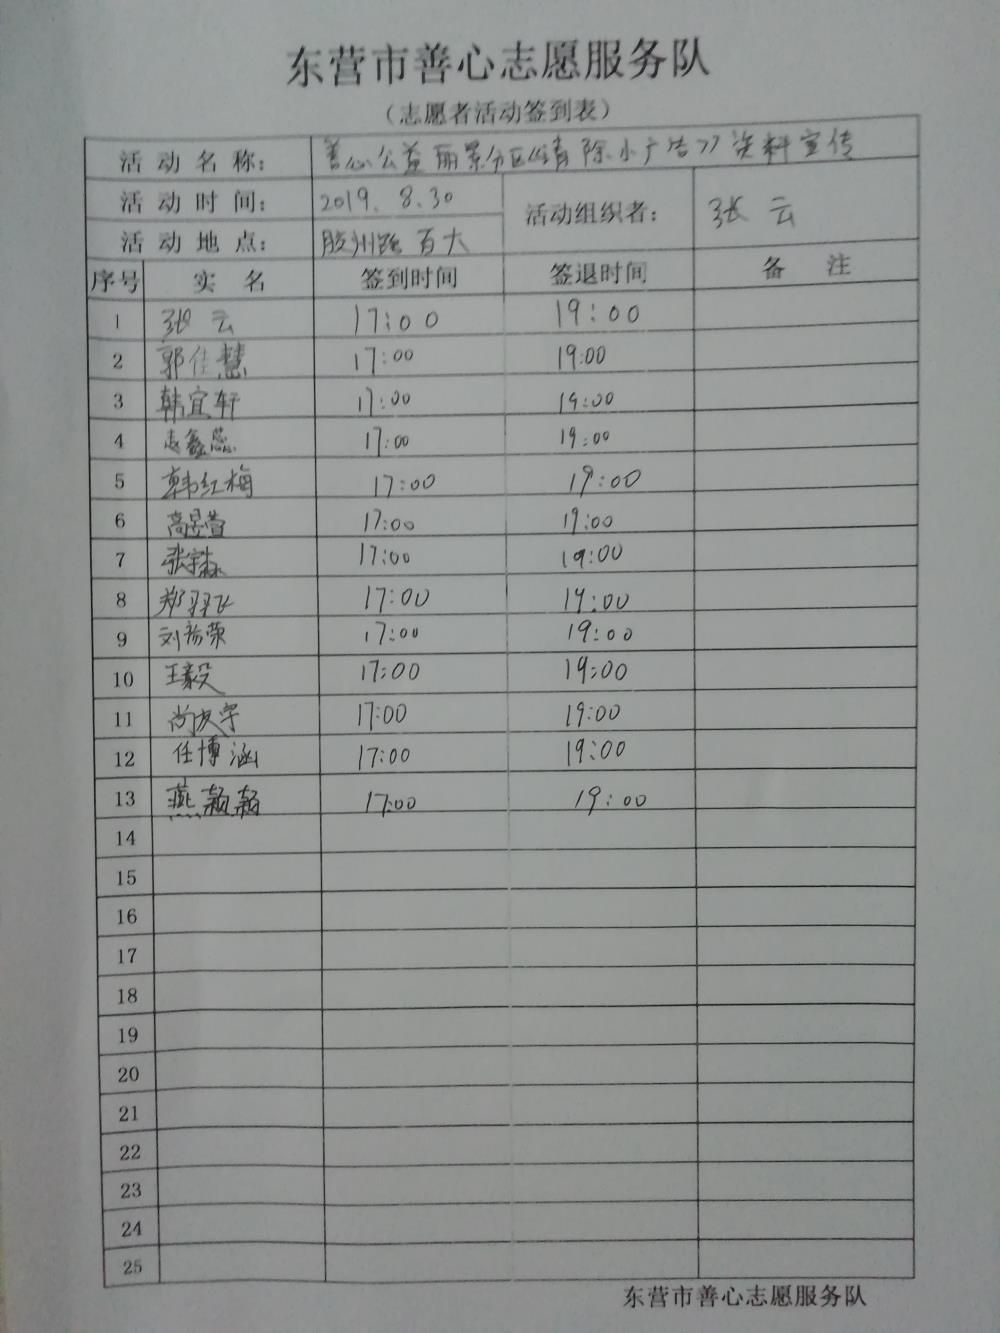 东营市善心志愿服务队
（志愿者活动签到表）
活动名称： 善心公益丽景分区《清除小广告》资料宣传
活动时间： 2019.8.30 活动组织者： 张云
活动地点： 胶州路百大
序号 实名 签到时间 签退时间 备注
1 张云 17:00 19:00
2 郭佳慧 17:00 19:00
3 韩宜轩 17:00 19:00
4 17:00 19:00
5 韩红梅 17:00 19:00
6 高昱萱 17:00 19:00
7 张宇森 17:00 19:00
8 郑羽飞 17:00 19:00
9 17:00 19:00
10 王毅 17:00 19:00
11 尚友宇 17:00 19:00
12 任博涵 17:00 19:00
13 燕颖颖 17:00 19:00
14
15
16
17
18
19
20
21
22
23
24
25
东营市善心志愿服务队